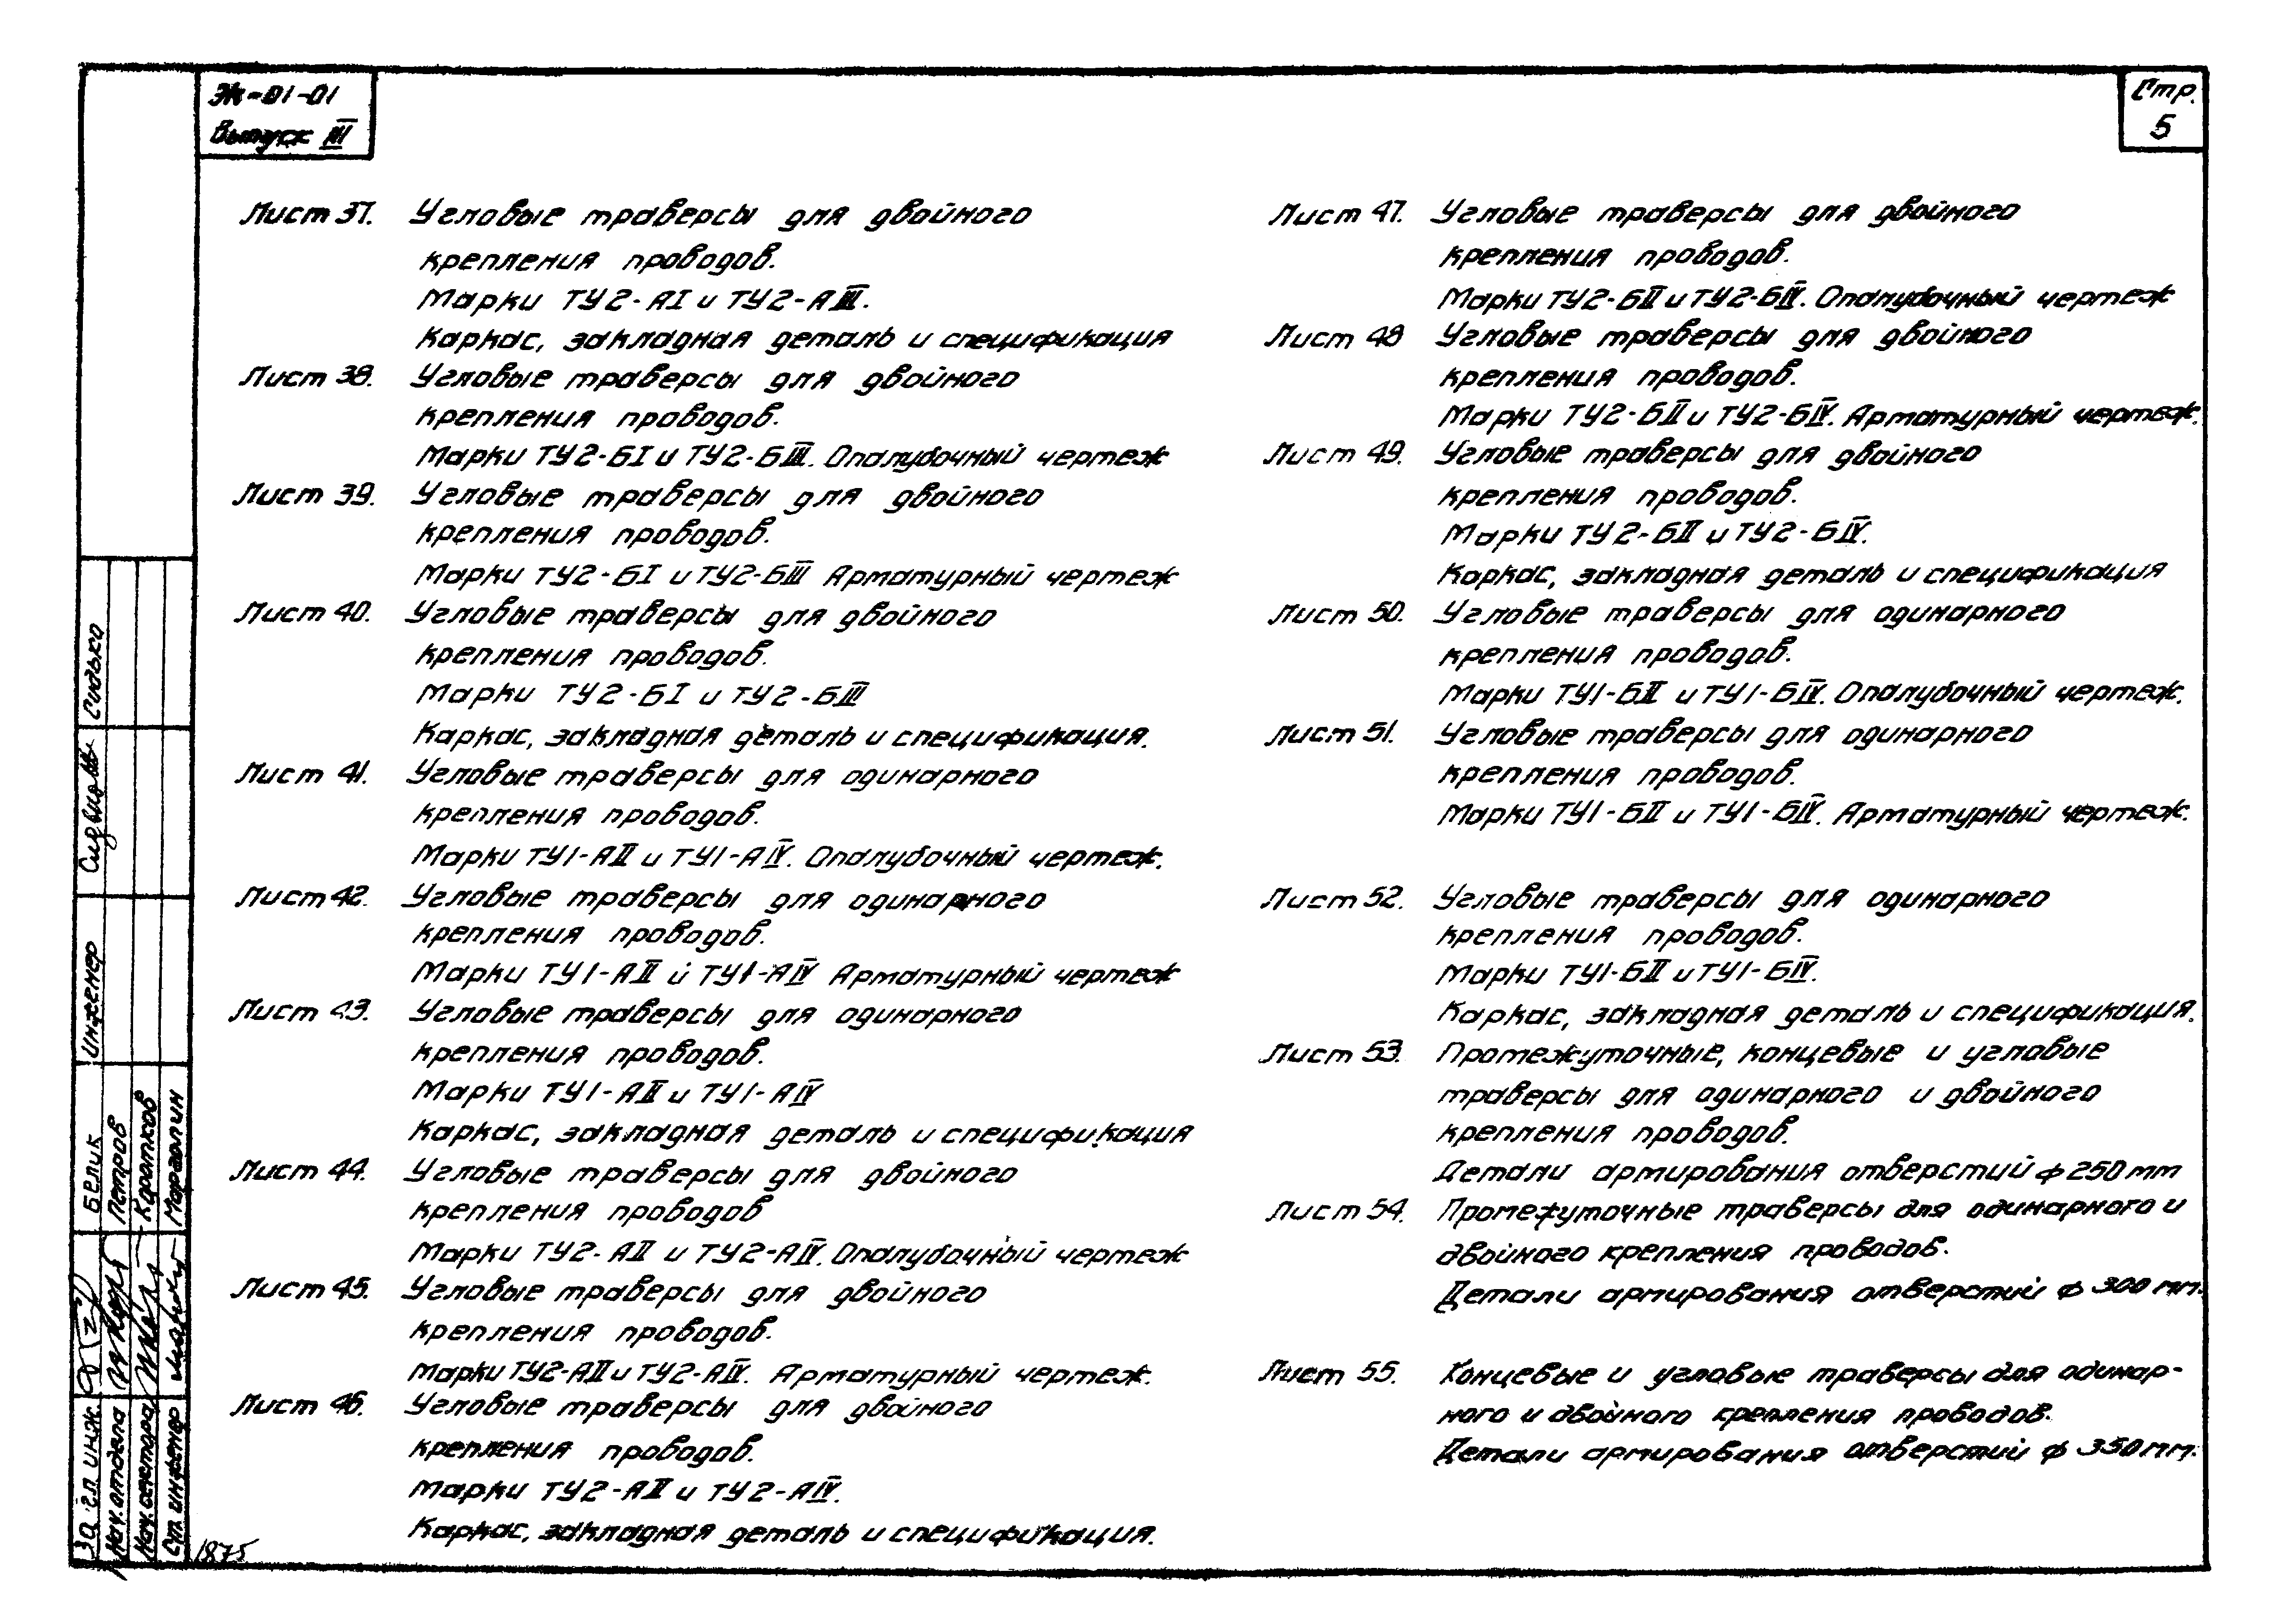 ЭЖ-01-01
Выпуск III
Стр.
5
Лист 37. Угловые траверсы для двойного
крепления проводов.
Марки ТУ2-АI и ТУ2-АIII.
Каркас, закладная деталь и спецификация
Лист 38. Угловые траверсы для двойного
крепления проводов.
Марки ТУ2-БI и ТУ2-БIII. Опалубочный чертеж
Лист 39. Угловые траверсы для двойного
крепления проводов.
Марки ТУ2-БI и ТУ2-БIII Арматурный чертеж
Лист 40. Угловые траверсы для двойного
крепления проводов.
Марки ТУ2-БI и ТУ2-БIII
Каркас, закладная деталь и спецификация.
Лист 41. Угловые траверсы для одинарного
крепления проводов.
Марки ТУ1-АII и ТУ1-АIV. Опалубочный чертеж.
Лист 42. Угловые траверсы для одинарного
крепления проводов.
Марки ТУ1-АII и ТУ1-АIV Арматурный чертеж
Лист 43. Угловые траверсы для одинарного
крепления проводов.
Марки ТУ1-АII и ТУ1-АIV
Каркас, закладная деталь и спецификация
Лист 44. Угловые траверсы для двойного
крепления проводов
Марки ТУ2-АII и ТУ2-АIV. Опалубочный чертеж
Лист 45. Угловые траверсы для двойного
крепления проводов.
Марки ТУ2-АII и ТУ2-АIV. Арматурный чертеж.
Лист 46. Угловые траверсы для двойного
крепления проводов.
Марки ТУ2-АII и ТУ2-АIV.
Каркас, закладная деталь и спецификация.
Лист 47. Угловые траверсы для двойного
крепления проводов.
Марки ТУ2-БII и ТУ2-БIV. Опалубочный чертеж
Лист 48 Угловые траверсы для двойного
крепления проводов.
Марки ТУ2-БII и ТУ2-БIV. Арматурный чертеж.
Лист 49. Угловые траверсы для двойного
крепления проводов.
Марки ТУ2-БII и ТУ2-БIV.
Каркас, закладная деталь и спецификация
Лист 50. Угловые траверсы для одинарного
крепления проводов.
Марки ТУ1-БII и ТУ1-БIV. Опалубочный чертеж.
Лист 51. Угловые траверсы для одинарного
крепления проводов.
Марки ТУ1-БII и ТУ1-БIV. Арматурный чертеж.
Лист 52. Угловые траверсы для одинарного
крепления проводов.
Марки ТУ1-БII и ТУ1-БIV.
Каркас, закладная деталь и спецификация.
Лист 53. Протежуточные, концевые и угловые
траверсы для одинарного и двойного
крепления проводов.
Детали армирования отверстий ф 250 мм
Лист 54. Промежуточные траверсы для одинарного и
двойного крепления проводов.
Детали армирования отверстий ф 300 мм.
Лист 55. Концевые и угловые траверсы для одинар-
ного и двойного крепления проводов.
Детали армирования отверстий ф 350 мм.
За. гл. инж. Белик инженер Сидько
Нач. отдела Петров
Нач. сектора Коротков
Ст. инженер Марголин
1875